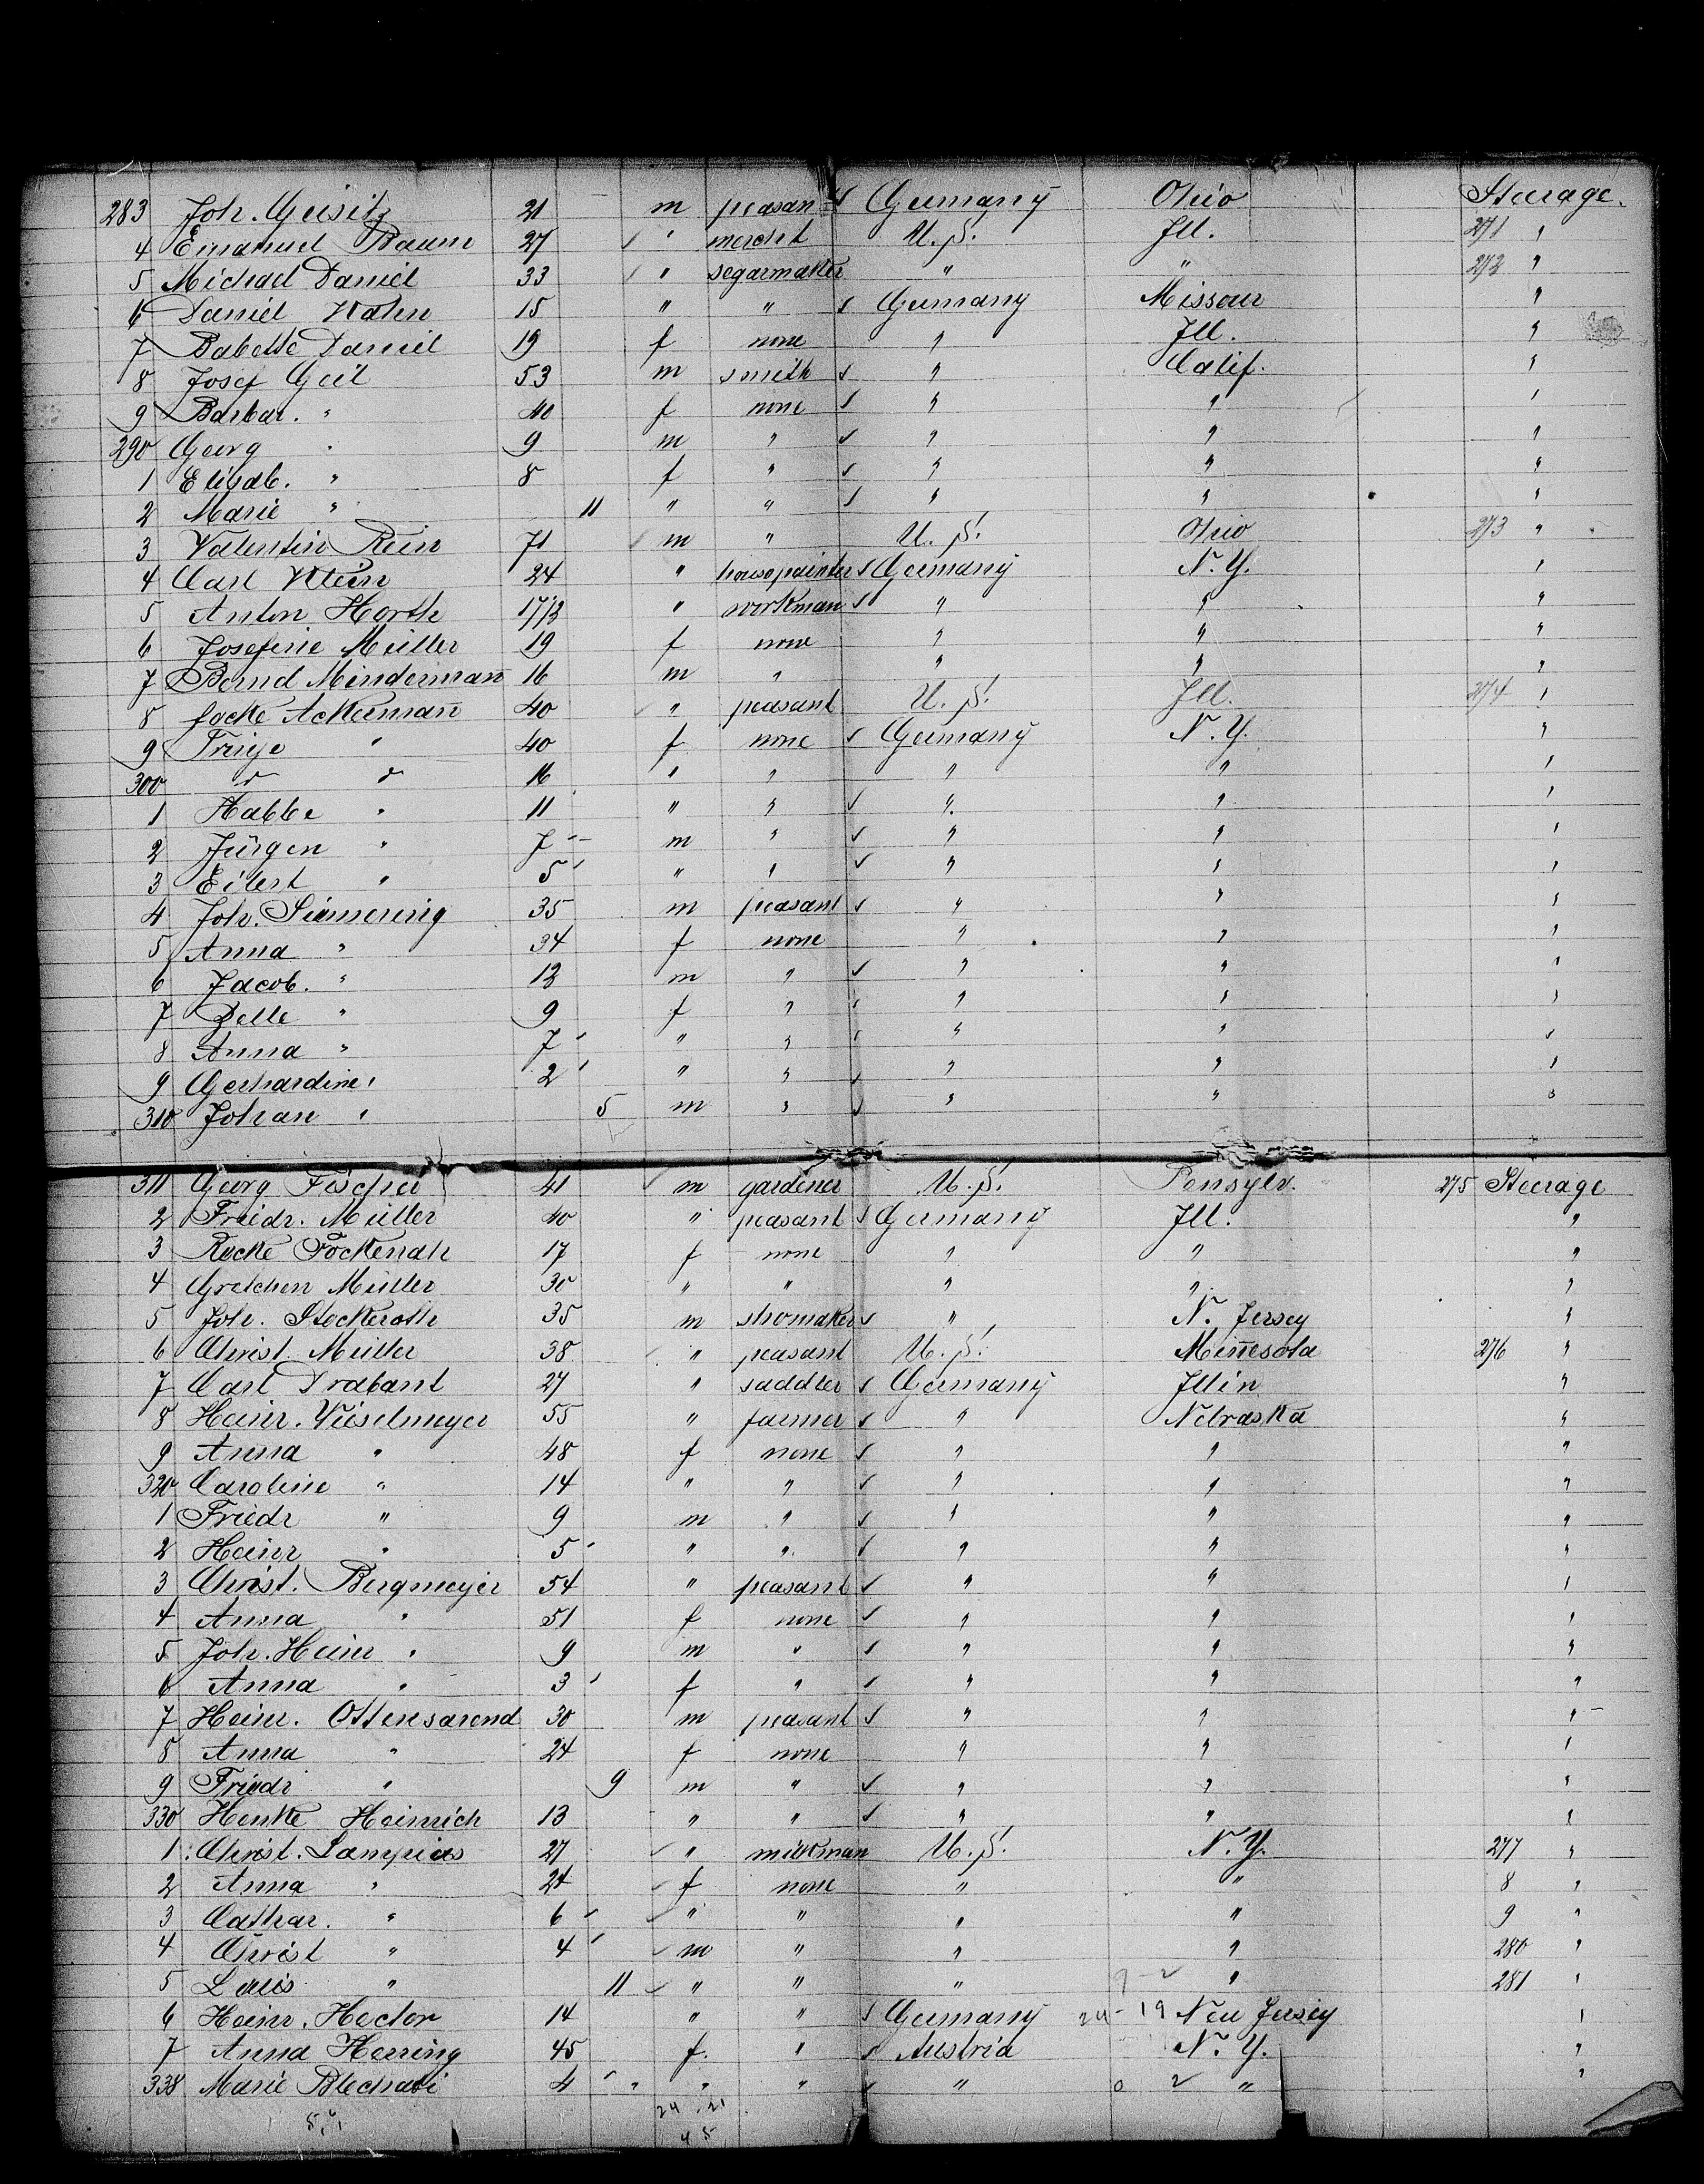 283 Joh. Geisitz 21 m peasant Germany Ohio Steerage.
4 Emanuel Baum 27 " mercht U.S. Ill. 271 "
5 Michael Daniel 33 " segarmaker " " 272 "
6 Daniel Hahn 15 " " Germany Missour "
7 Babette Daniel 19 f none " Ill. "
8 Josef Geil 53 m smith " Calif. "
9 Barbar. " 40 f none " " "
290 Georg " 9 m " " " "
1 Elisab. " 8 f " " " "
2 Marie " 11 " " " " "
3 Valentin Rein 71 m " U.S. Ohio 273 "
4 Carl Klein 24 " housepainter Germany N.Y. "
5 Anton Horth 17 1/2 " workman " " "
6 Josefine Müller 19 f none " " "
7 Bernd Mindermann 16 m " " " "
8 Focke Ackerman 40 " peasant U.S. Ill. 274 "
9 Trinje " 40 f none Germany N.Y. "
300 " " 16 " " " " "
1 Habbe " 11 " " " " "
2 Jürgen " 7 m " " " "
3 Eilert " 5 " " " " "
4 Joh. Simmering 35 m peasant " " "
5 Anna " 34 f none " " "
6 Jacob. " 12 m " " " "
7 Zelle " 9 f " " " "
8 Anna " 7 " " " " "
9 Gerhardine " 2 " " " " "
310 Johan " 5 m " " " "
311 Georg Fischer 41 m gardener U.S. Pensylv. 275 Steerage
2 Friedr. Müller 40 " peasant Germany Ill. "
3 Rocke Fockenah 17 f none " " "
4 Gretchen Müller 30 " " " " "
5 Joh. Stockeroth 35 m shomaker " N. Jersey "
6 Christ. Müller 38 " peasant U.S. Minesota 276 "
7 Carl Trabant 27 " saddler Germany Illin "
8 Heinr. Wieselmeyer 55 " farmer " Nebraska "
9 Anna " 48 f none " " "
320 Caroline " 14 " " " " "
1 Friedr " 9 m " " " "
2 Heinr " 5 " " " " "
3 Christ. Bergmeyer 54 " peasant " " "
4 Anna " 51 f none " " "
5 Joh. Heinr " 9 m " " " "
6 Anna " 3 f " " " "
7 Heinr. Ottensarend 30 m peasant " " "
8 Anna " 24 f none " " "
9 Friedr " 9 m " " " "
330 Henke Heinrich 13 " " " " "
1 Christ. Lampias 27 " milkman U.S. N.Y. 277 "
2 Anna " 24 f none " " 8 "
3 Cathar. " 6 " " " " 9 "
4 Christ " 4 m " " " 280 "
5 Louis " 11 " " " 9-2 " 281 "
6 Heinr. Hector 14 " " Germany 24-19 Neu Jersey "
7 Anna Herring 45 f. " Austria N.Y. "
338 Marie Blechati 4 " " " " 0 2 " "
24 21
4 5